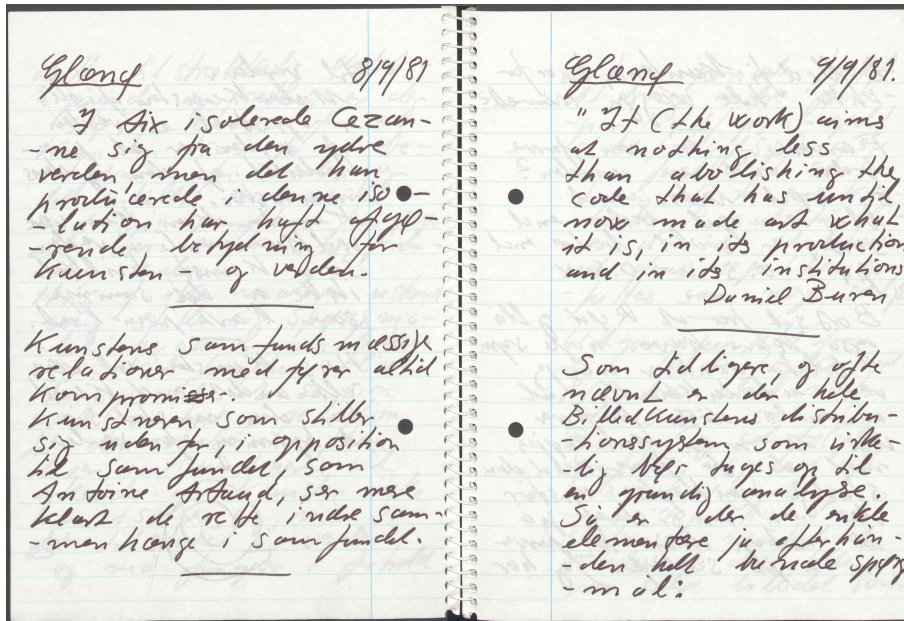 Glanø 8/9/81
I Aix isolerede Cezan-
-ne sig fra den ydre
verden, men det han
producerede i denne iso-
-lation har haft afgø-
-rende betydning for
kunsten - og verden.
Kunstens samfundsmæssige
relationer medfører altid
kompromis.
Kunstneren, som stiller
sig udenfor, i opposition
til samfundet, som
Antoine Artaud, ser mere
klart de rette indre sam-
-menhænge i samfundet.
Glanø 9/9/81.
"It (the work) aims
at nothing less
than abolishing the
code that has until
now made art what
it is, in its production
and in its institutions
Daniel Buren
Som tidligere, og ofte
nævnt er der hele
Billedkunstens distribu-
-tionssystem som virke-
-lig bør tages op til
en grundig analyse.
Så er der de enkle
elementære ja efterhån-
-den helt banale spørgs
-mål: